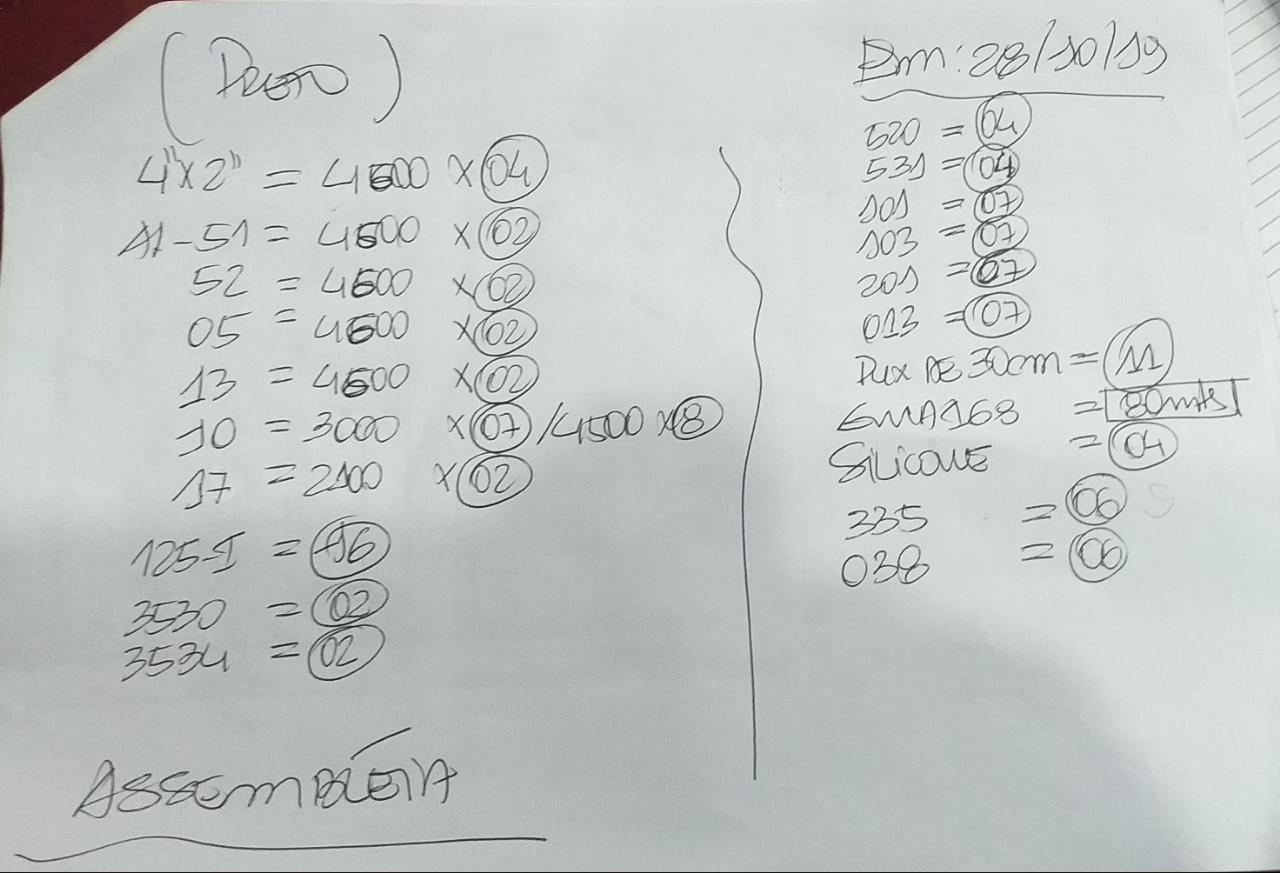 (PRETO)
4"x2" = 4600 x 04
A1-51 = 4600 x 02
52 = 4600 x 02
05 = 4600 x 02
13 = 4600 x 02
10 = 3000 x 07 / 4500 x 8
17 = 2100 x 02
125-I = 16
3530 = 02
3534 = 02
ASSEMBLÉIA
Em: 28/10/19
520 = 04
531 = 04
101 = 07
103 = 07
201 = 07
013 = 07
PUX DE 30cm = 11
GUA168 = 80mts
SILICONE = 04
335 = 06
038 = 06